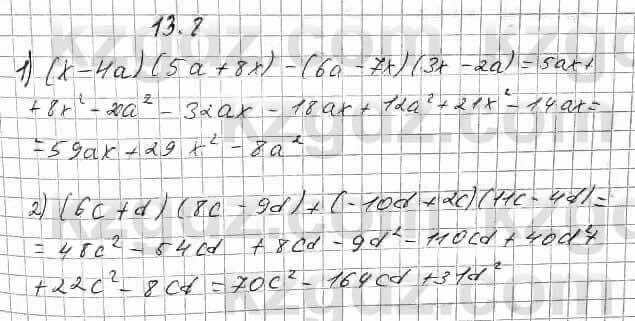 13.2
1) (x-4a)(5a+8x)-(6a-7x)(3x-2a)=5ax+
+8x²-20a²-32ax-18ax+12a²+21x²-14ax=
=-59ax+29x²-8a²
2) (6c+d)(8c-9d)+(-10d+2c)(11c-4d)=
=48c²-54cd+8cd-9d²-110cd+40d²+
+22c²-8cd=70c²-164cd+31d²